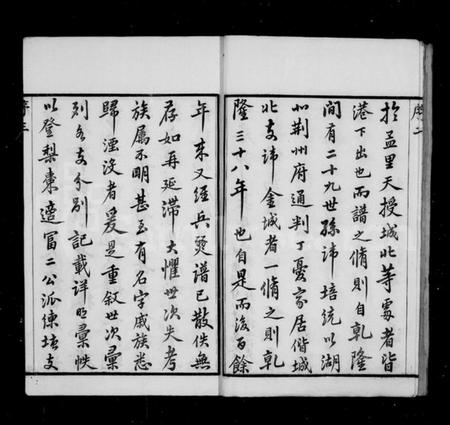 序二
於孟里天授城北等處者皆
港下出也而譜之脩則自乾隆
間有二十九世孫諱培統以湖
北荆州府通判丁憂家居偕城
北支諱金城者一脩之則乾
隆三十八年也自是而後百餘
年來又經兵燹譜已散佚無
存如再延滯大懼世次失考
族属不明甚至有名字戚族悉
歸湮沒者爰是重叙世次彙
列各支分别記載詳明彙帙
以登梨棗遵冨二公派係培支
序三